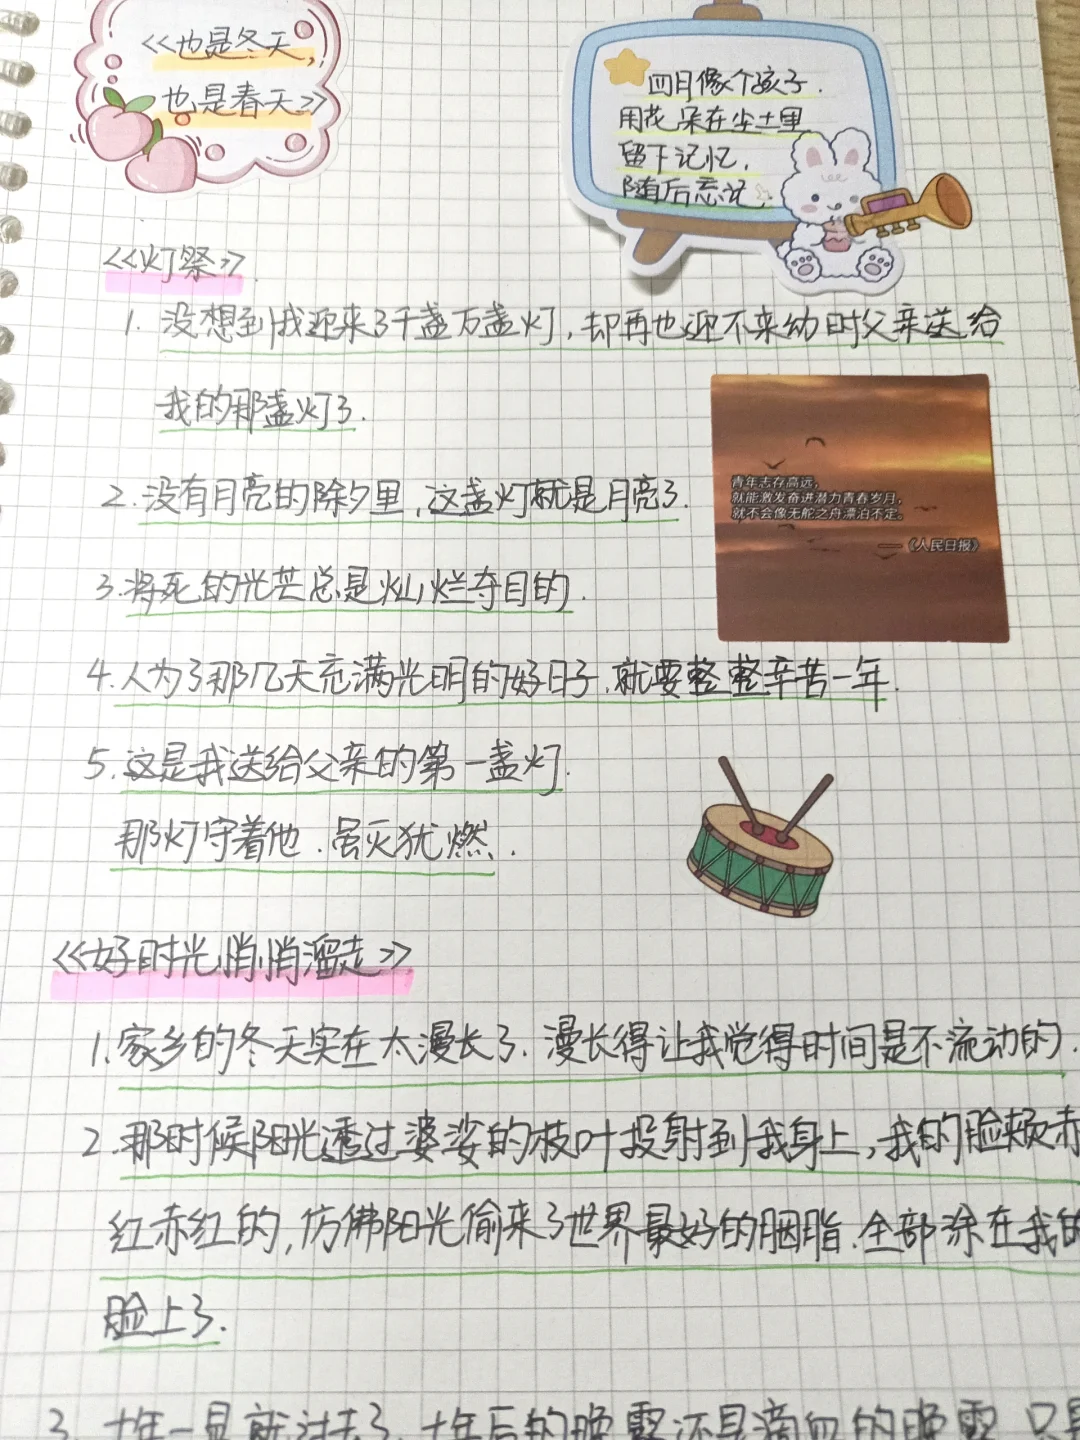 <<也是冬天,
也是春天>>
四月像个孩子.
用花朵在尘土里
留下记忆,
随后忘记.
<<灯祭>>.
1. 没想到我迎来了千盏万盏灯,却再也迎不来幼时父亲送给
我的那盏灯了.
青年志存高远,
就能激发奋进潜力青春岁月,
就不会像无舵之舟漂泊不定。
——《人民日报》
2. 没有月亮的除夕里,这盏灯就是月亮了.
3.将死的光芒总是灿烂夺目的.
4.人为了那几天充满光明的好日子.就要整整辛苦一年.
5.这是我送给父亲的第一盏灯.
那灯守着他.虽灭犹燃.
<<好时光悄悄溜走>>
1.家乡的冬天实在太漫长了.漫长得让我觉得时间是不流动的.
2.那时候阳光透过婆娑的枝叶投射到我身上,我的脸颊赤
红赤红的,仿佛阳光偷来了世界最好的胭脂.全部涂在我的
脸上了.
3. 十年一晃就过去了.十年后的晚霞还是滴血的晚霞.只是